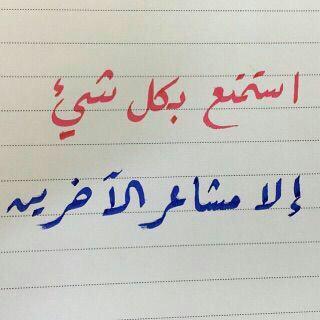 استمتع بكل شيئ
إلا مشاعر الآخرين